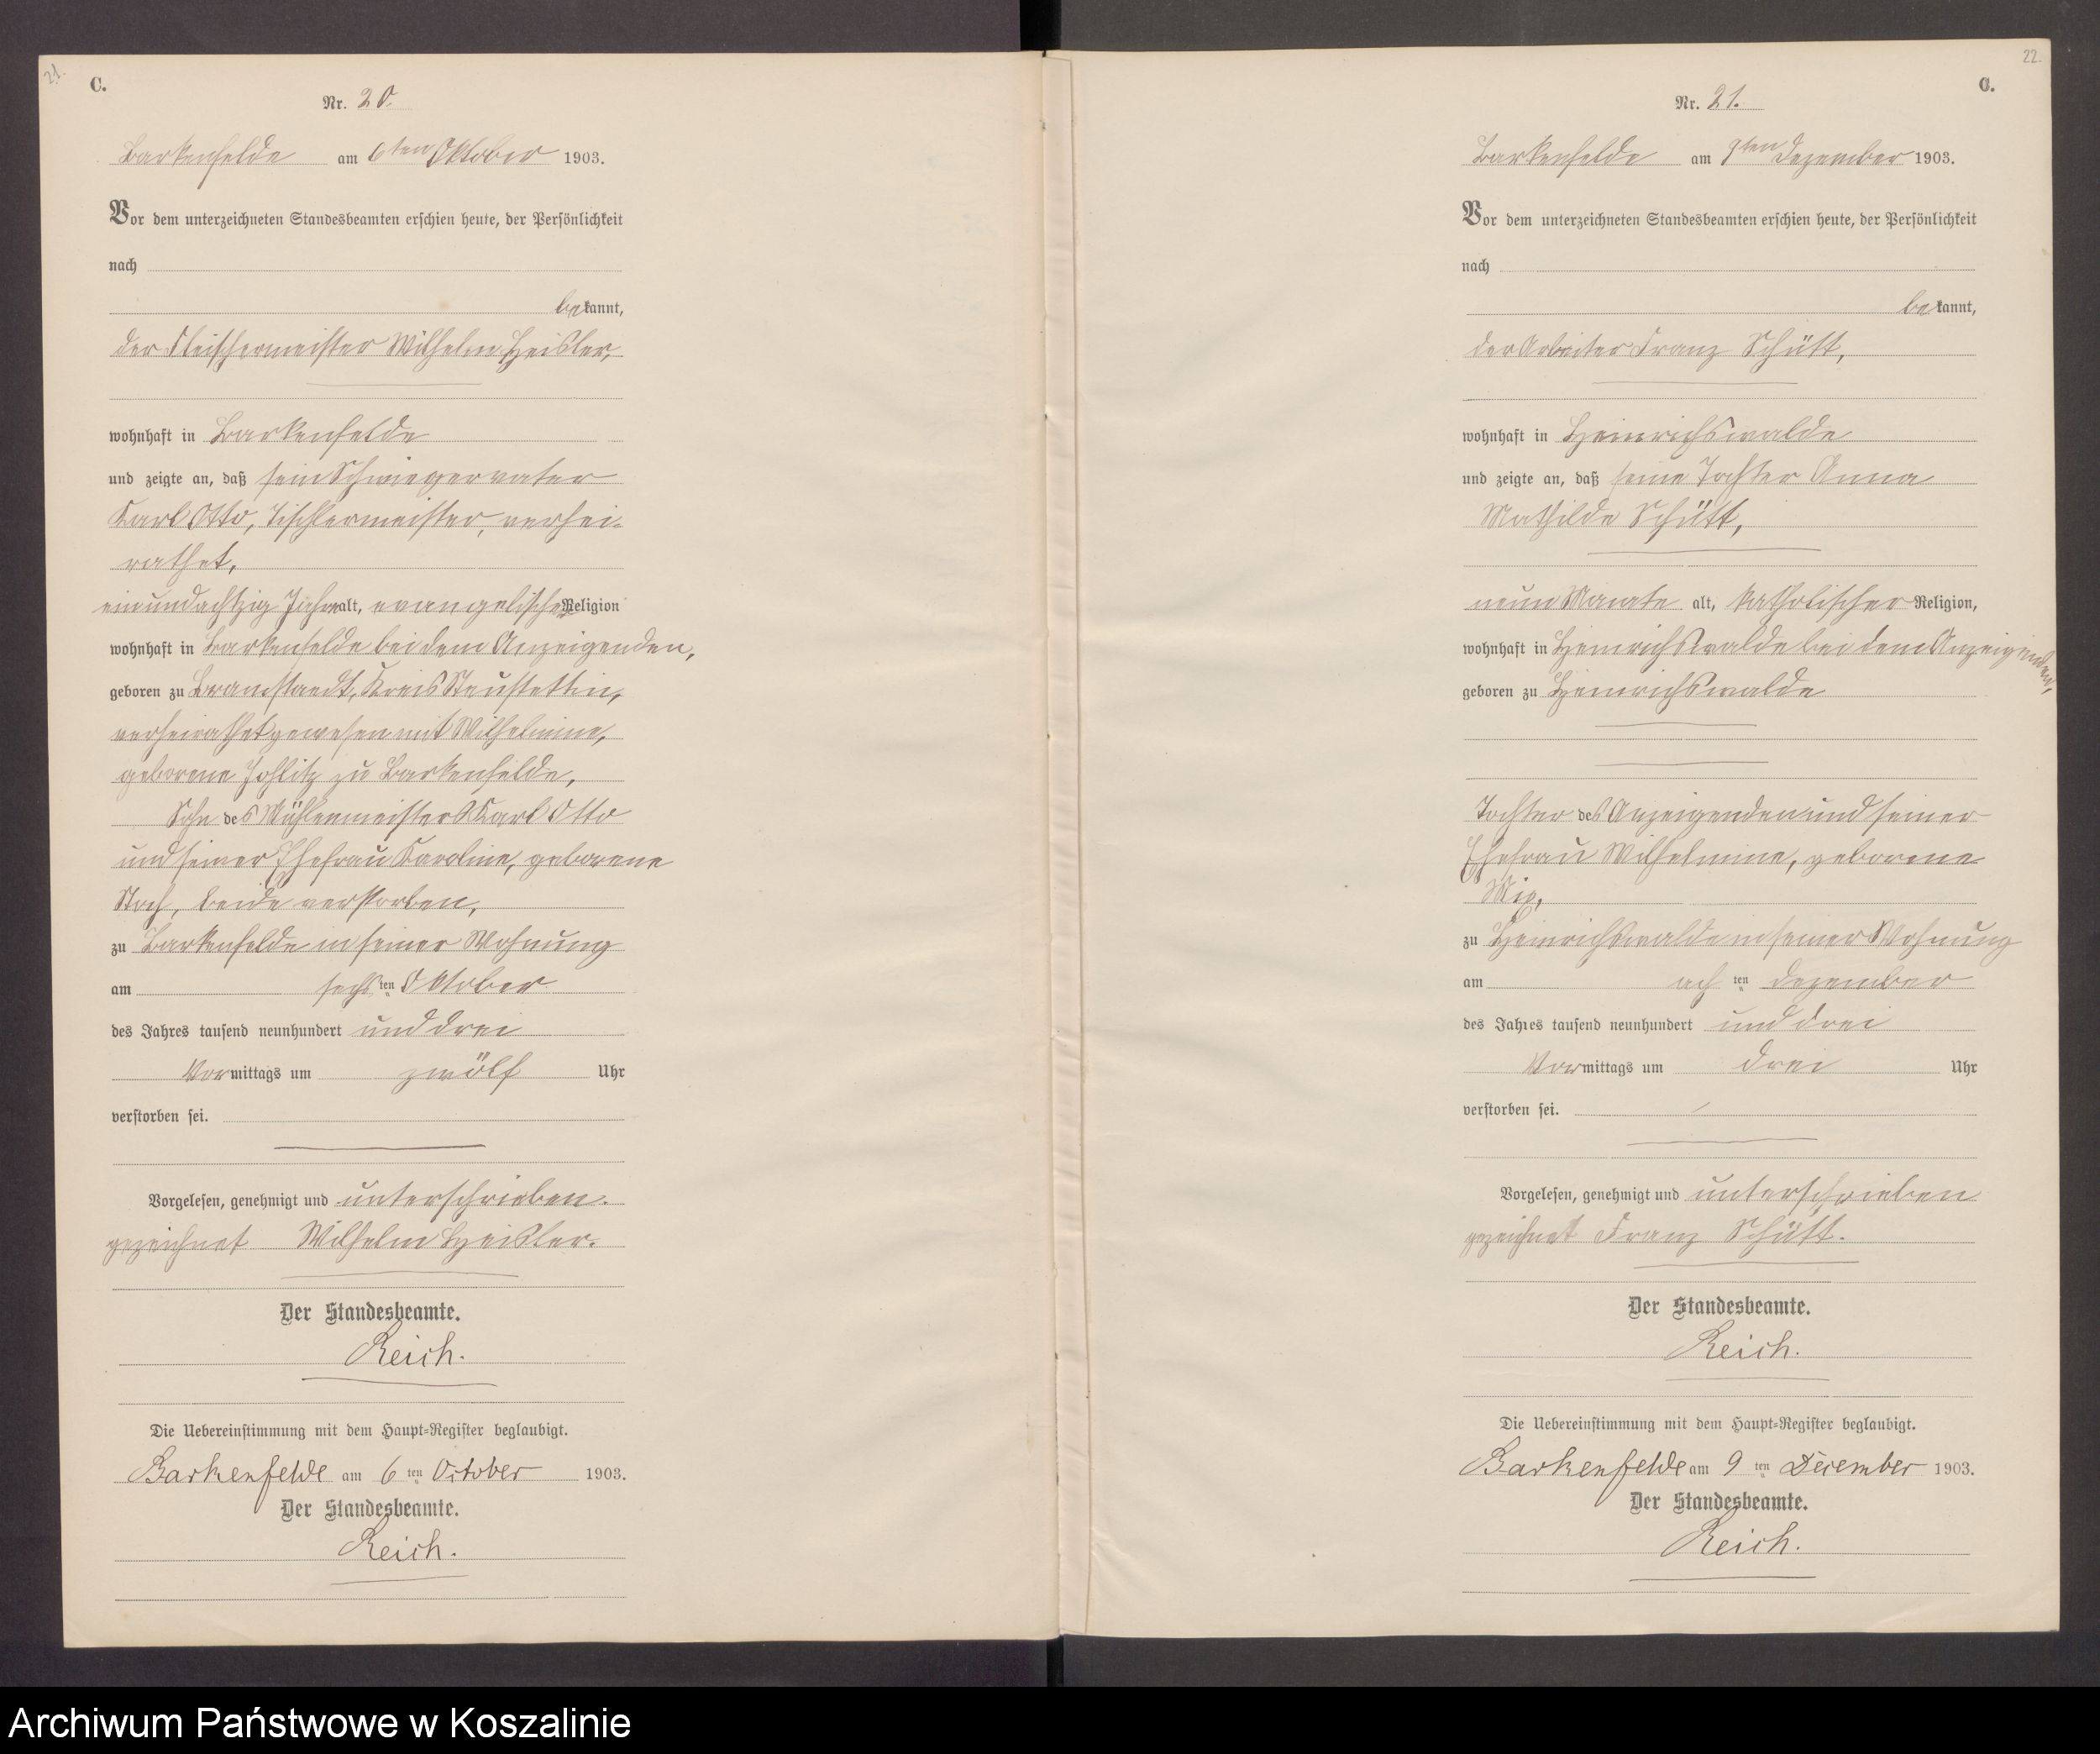 21.
C.
Nr. 20.
Barkenfelde am 6ten Oktober 1903.
Vor dem unterzeichneten Standesbeamten erschien heute, der Persönlichkeit
nach
bekannt,
der Fleischermeister Wilhelm Heisler,
wohnhaft in Barkenfelde
und zeigte an, daß sein Schwiegervater
Karl Otto, Tischlermeister, verhei-
rathet,
einundachtzig Jahre alt, evangelischer Religion
wohnhaft in Barkenfelde bei dem Anzeigenden,
geboren zu Kreis Neustettin,
verheirathet gewesen mit Wilhelmine,
geborene zu Barkenfelde,
Sohn des Mühlenmeisters Karl Otto
und seiner Ehefrau Karoline, geborene
beide verstorben,
zu Barkenfelde in seiner Wohnung
am sechsten Oktober
des Jahres tausend neunhundert und drei
Vormittags um zwölf Uhr
verstorben sei.
Vorgelesen, genehmigt und unterschrieben.
gezeichnet Wilhelm Heisler.
Der Standesbeamte.
Reich.
Die Uebereinstimmung mit dem Haupt-Register beglaubigt.
Barkenfelde am 6ten October 1903.
Der Standesbeamte.
Reich.
22.
C.
Nr. 21.
Barkenfelde am 9ten Dezember 1903.
Vor dem unterzeichneten Standesbeamten erschien heute, der Persönlichkeit
nach
bekannt,
der Arbeiter Franz Schütt,
wohnhaft in Heinrichswalde
und zeigte an, daß seine Tochter Anna
Mathilde Schütt,
neun Monate alt, katholischer Religion,
wohnhaft in Heinrichswalde bei dem Anzeigenden,
geboren zu Heinrichswalde
Tochter des Anzeigenden und seiner
Ehefrau Wilhelmine, geborene
Mix,
zu Heinrichswalde in seiner Wohnung
am achten Dezember
des Jahres tausend neunhundert und drei
Vormittags um drei Uhr
verstorben sei.
Vorgelesen, genehmigt und unterschrieben
gezeichnet Franz Schütt.
Der Standesbeamte.
Reich.
Die Uebereinstimmung mit dem Haupt-Register beglaubigt.
Barkenfelde am 9ten December 1903.
Der Standesbeamte.
Reich.
Archiwum Państwowe w Koszalinie